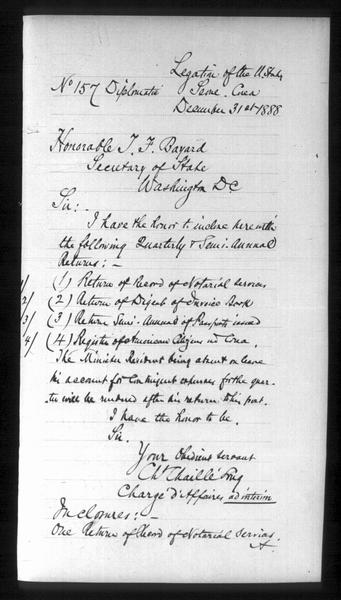 Legation of the U. States
No 157 Diplomatic Seoul, Corea
December 31st 1888
Honorable T. F. Bayard
Secretary of State
Washington DC
Sir:-
I have the honor to inclose herewith
the following Quarterly & Semi-Annual
Returns:-
1/ (1) Return of Record of Notarial Services
2/ (2) Return of Digest of Invoice Book
3/ (3) Return Semi-Annual of Passports issued
4/ (4) Register of American Citizens in Corea.
The Minister Resident being absent on leave
his account for Contingent expenses for the quar-
ter will be rendered after his return to his post.
I have the honor to be.
Sir.
Your Obedient servant
Ch Chaillé Long
Chargé d'Affaires ad interim
Inclosures:-
One Return of Record of Notarial Services.